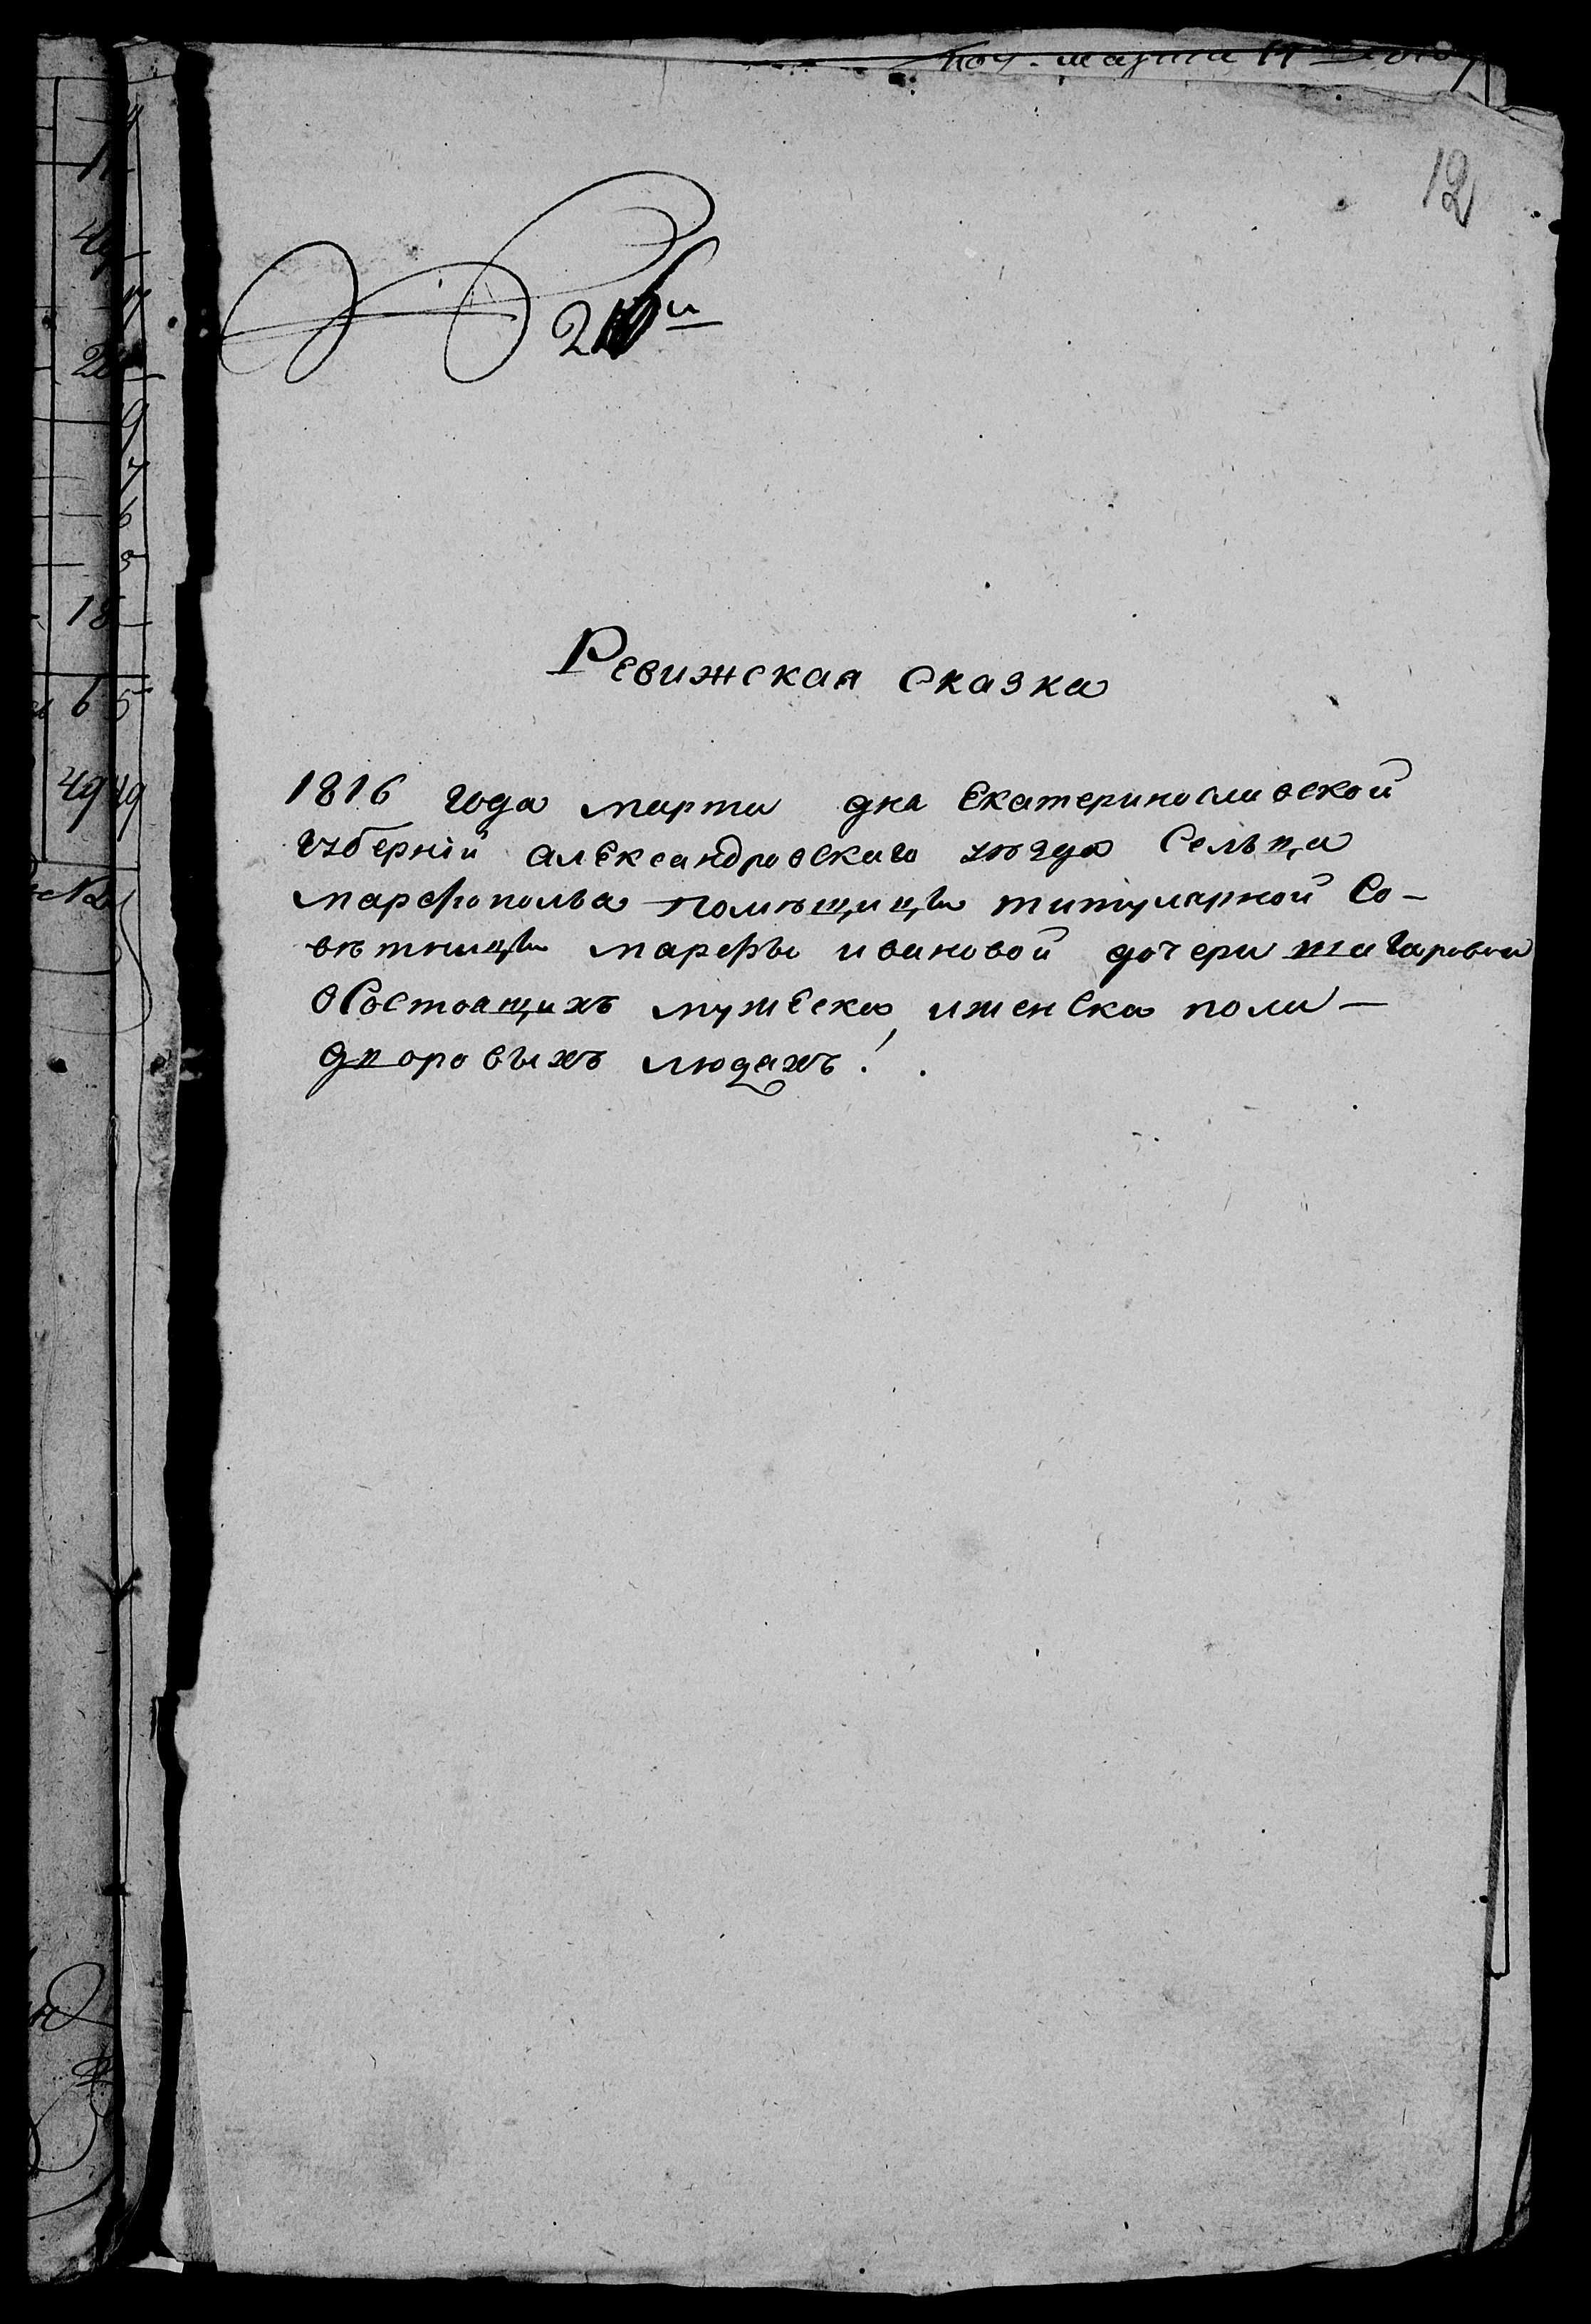 12
Ревижская сказка
1816 года марта дня Екатеринославской
Губерніи Александровскаго уѣзда Сельца
марфополья помѣщицы титулярной Со-
вѣтницы марфы ивановой дочери
о Состоящихъ мужеска и женска пола —
дворовыхъ людяхъ.